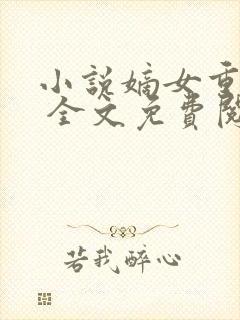 小说嫡女重
全文免費閱
若我醉心